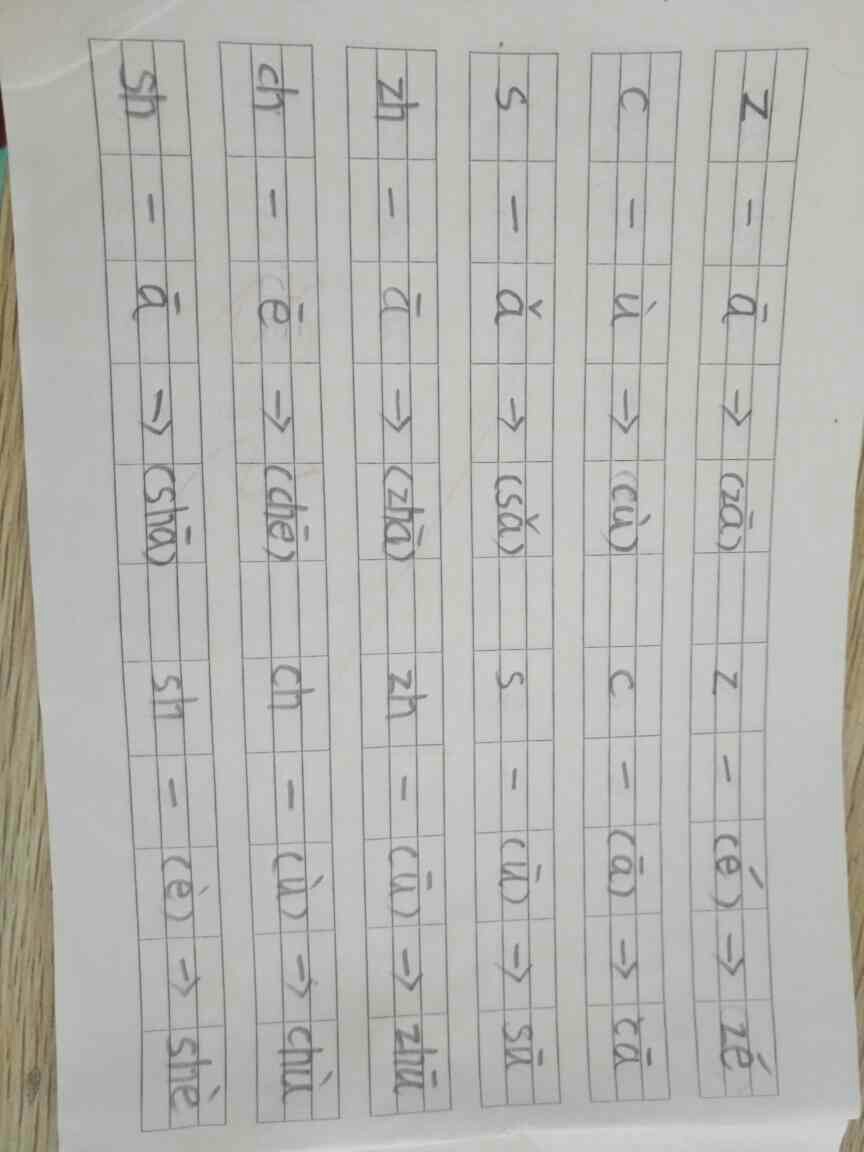 z - ā → (zā) z - (é) → zé
c - ù → (cù) c - (ā) → cā
s - ǎ → (sǎ) s - (ū) → sū
zh - ā → (zhā) zh - (ū) → zhū
ch - ē → (chē) ch - (ù) → chù
sh - ā → (shā) sh - (è) → shè